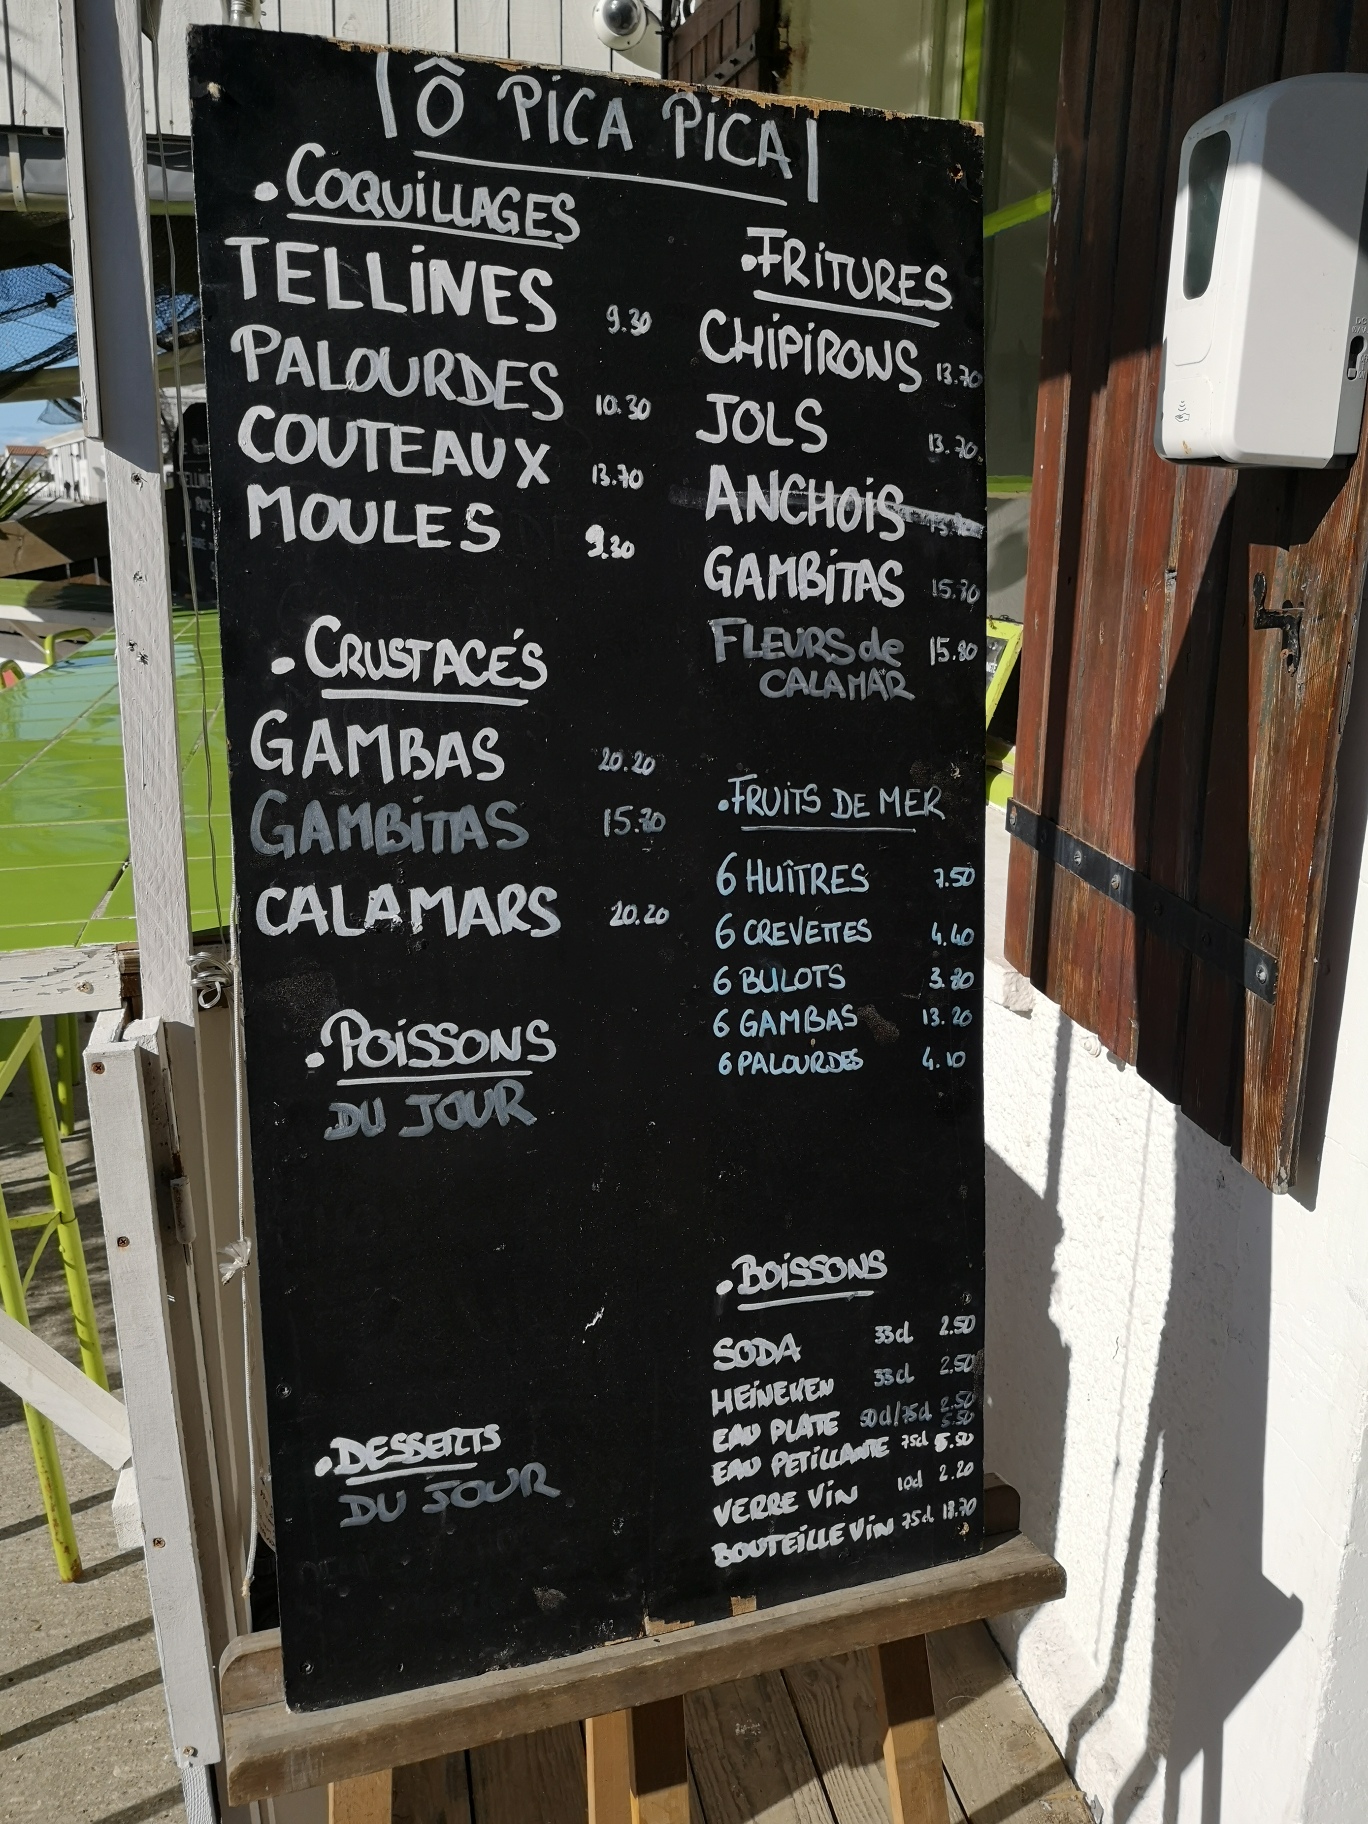 Ô PICA PICA
• COQUILLAGES
TELLINES 9.30
PALOURDES 10.30
COUTEAUX 13.70
MOULES 9.30
• CRUSTACÉS
GAMBAS 20.20
GAMBITAS 15.70
CALAMARS 20.20
• POISSONS
DU JOUR
• DESSERTS
DU JOUR
• FRITURES
CHIPIRONS 13.70
JOLS 13.70
ANCHOIS
GAMBITAS 15.70
FLEURS de 15.80
CALAMAR
• FRUITS DE MER
6 HUÎTRES 7.50
6 CREVETTES 4.40
6 BULOTS 3.80
6 GAMBAS 13.20
6 PALOURDES 4.10
• BOISSONS
SODA 33cl 2.50
HEINEKEN 33cl 2.50
EAU PLATE 50cl/75cl 2.50
5.50
EAU PETILLANTE 75cl 5.50
VERRE VIN 10cl 2.20
BOUTEILLE VIN 75cl 13.70